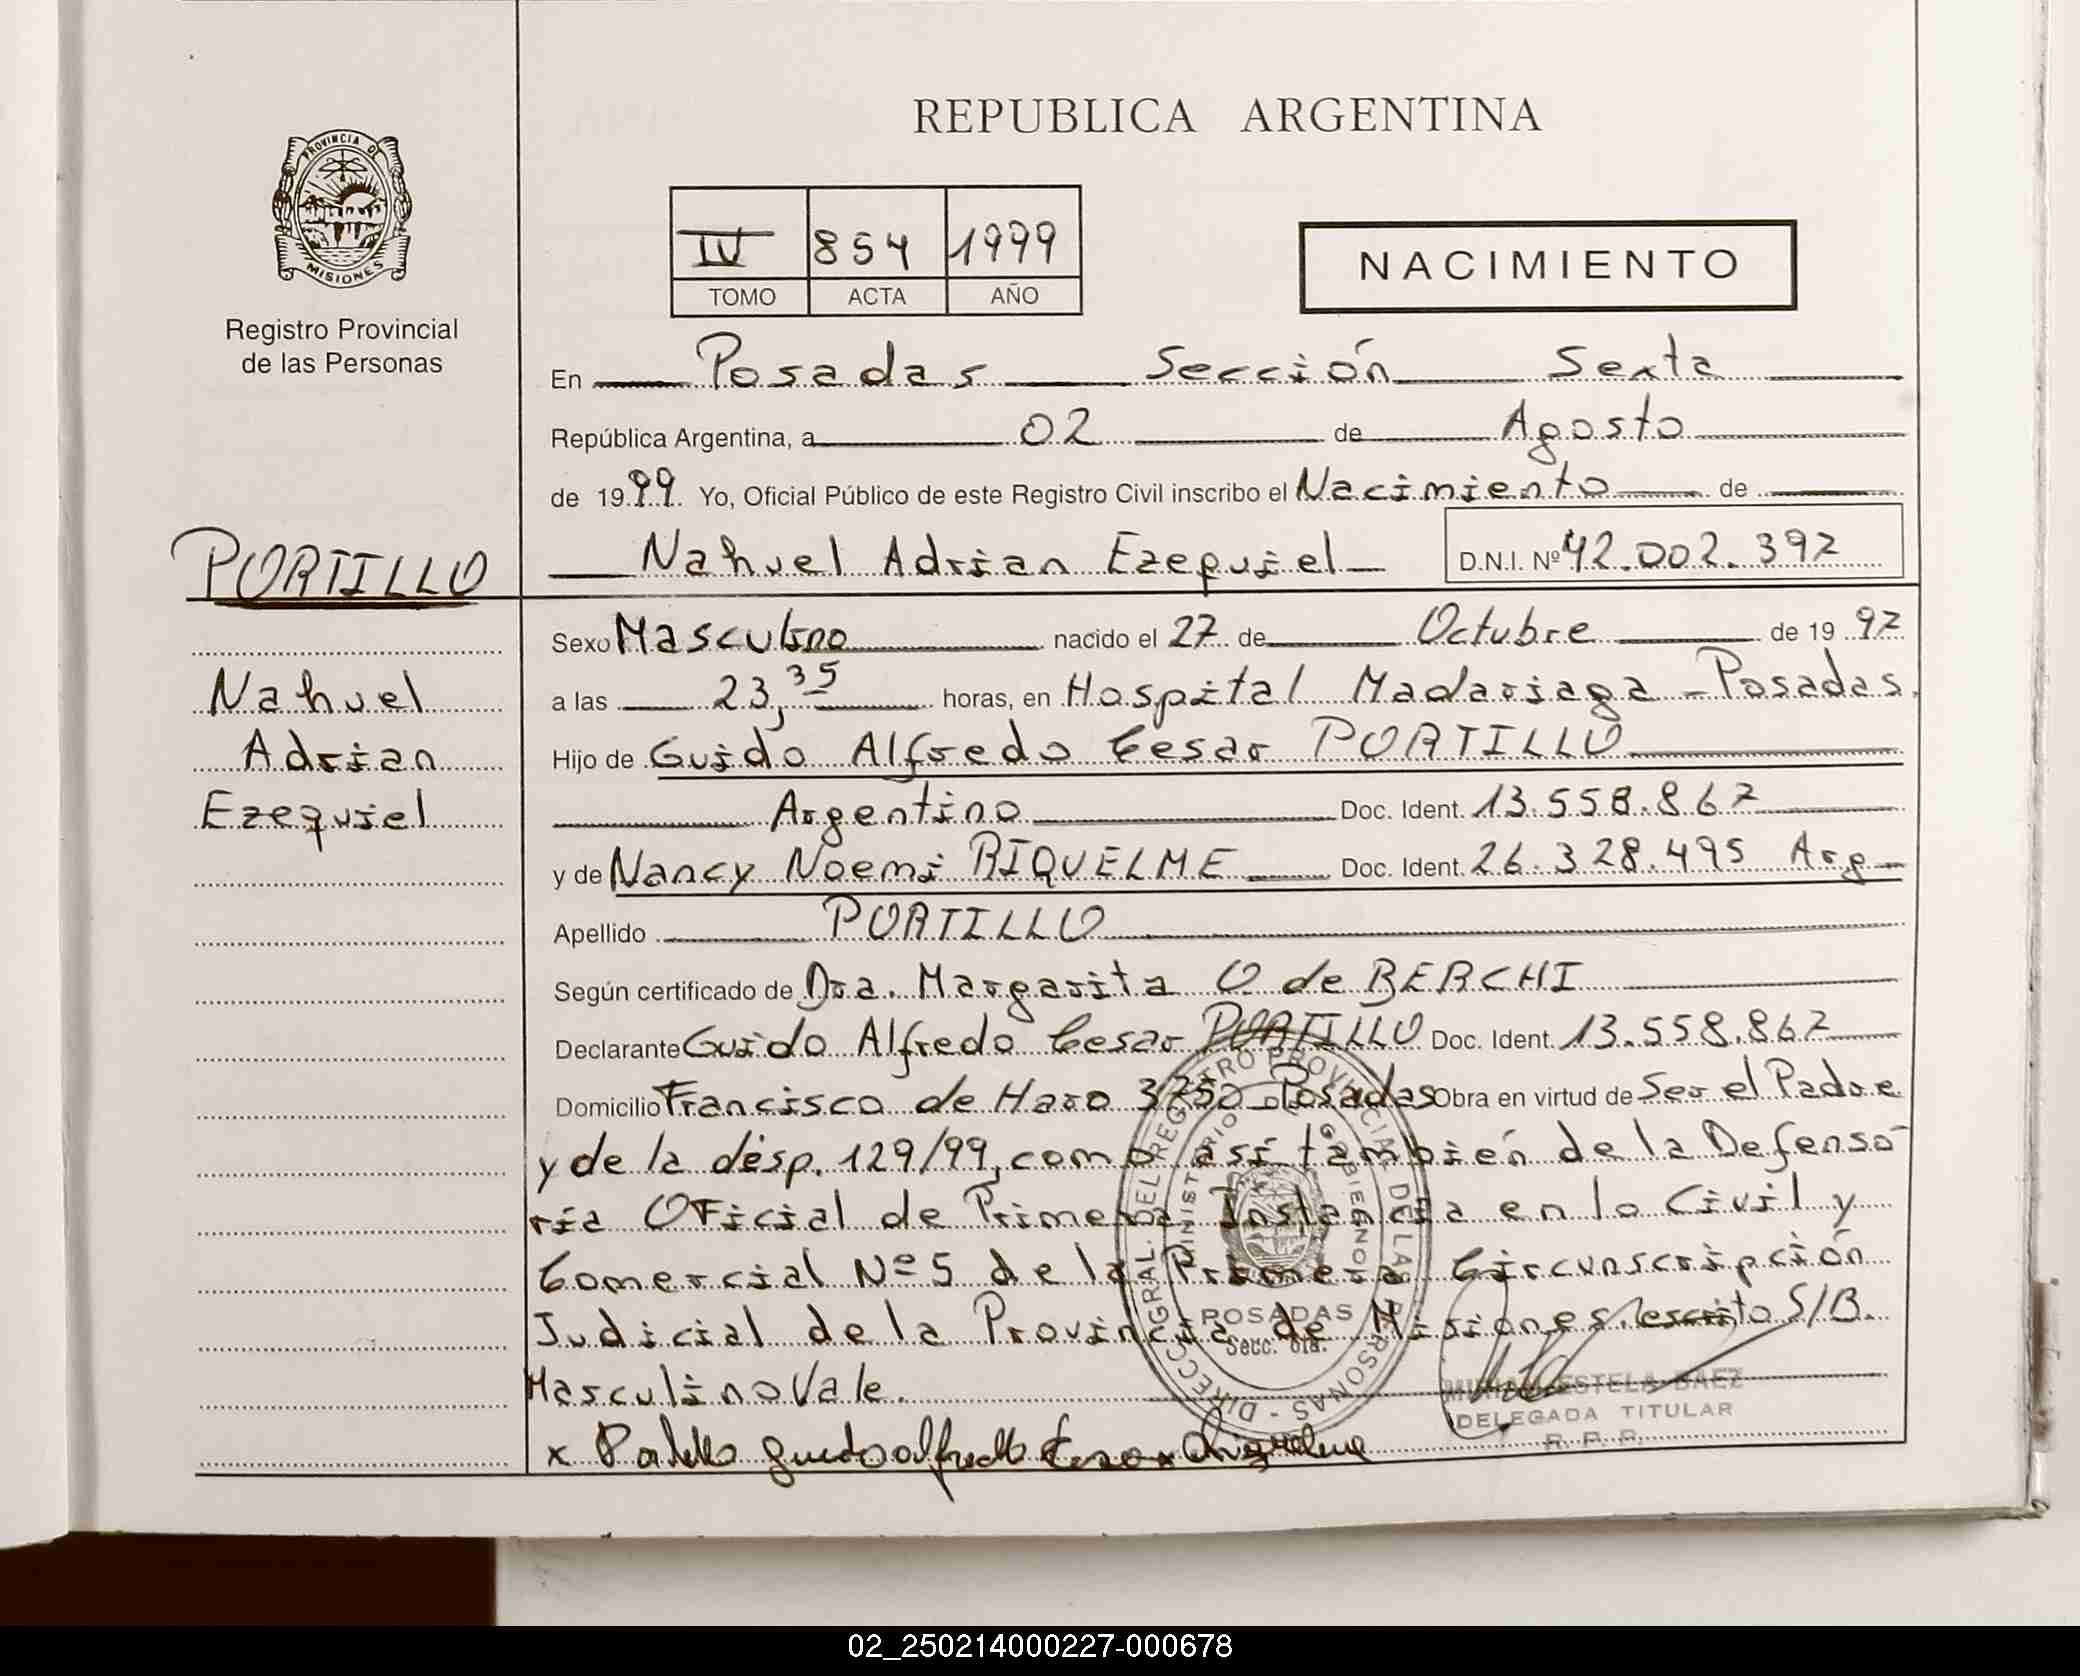 REPUBLICA ARGENTINA
PROVINCIA DE
MISIONES
Registro Provincial
de las Personas
IV 854 1999
TOMO ACTA AÑO
NACIMIENTO
En Posadas Sección Sexta
República Argentina, a 02 de Agosto
de 1999. Yo, Oficial Público de este Registro Civil inscribo el Nacimiento de
PORTILLO
Nahuel Adrian Ezequiel D.N.I. Nº 42.002.397
Sexo Masculino nacido el 27 de Octubre de 1997
Nahuel
a las 23,35 horas, en Hospital Madariaga - Posadas.
Adrian
Hijo de Guido Alfredo Cesar PORTILLO
Ezequiel
Argentino Doc. Ident. 13.558.867
y de Nancy Noemi RIQUELME Doc. Ident. 26.328.495 Arg
Apellido PORTILLO
Según certificado de Dra. Margarita O de BERCHI
Declarante Guido Alfredo Cesar PORTILLO Doc. Ident. 13.558.867
Domicilio Francisco de Haro 3750 Posadas Obra en virtud de Ser el Padre
y de la desp. 129/99, como asi también de la Defenso
ria Oficial de Primera Instancia en lo Civil y
Comercial Nº 5 de la Primera Circunscripción
Judicial de la Provincia de Misiones. escrito S/B.
Masculino Vale.
DIRECC. GRAL. DEL REGISTRO PROVINCIAL DE LAS PERSONAS
MINISTERIO GOBIERNO
POSADAS
Secc. 6ta.
ESTELA BAEZ
DELEGADA TITULAR
R. P. P.
x Portillo Guido alfredo Cesar x Riquelme
02_250214000227-000678